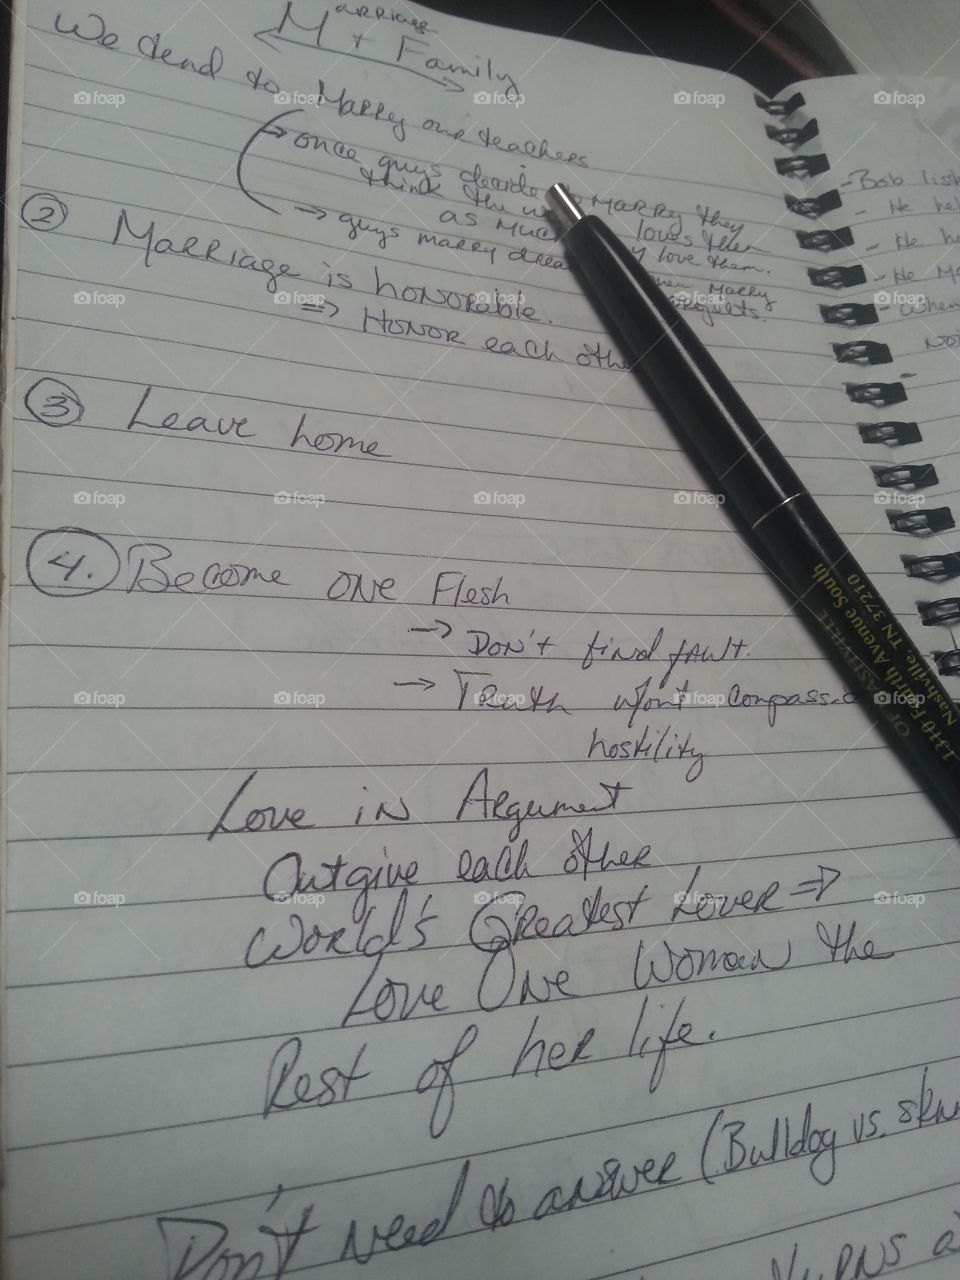 Marriage
+ Family
We tend to Marry our teachers
→ once guys decide to MARRY they
think the loves them
as much love them.
→ guys marry
Marry
② Marriage is honorable.
⇒ Honor each
③ Leave home
④. Become one Flesh
→ Don't find fault.
→ Truth w/out
hostility
Love in Argument
Outgive each other
World's Greatest Lover ⇒
Love One Woman the
Rest of her life.
Don't need to answer (Bulldog vs.
- Bob
- He
- He
- He
- When
OF NASHVILLE
1310 Fourth Avenue South
Nashville, TN 37210
foap